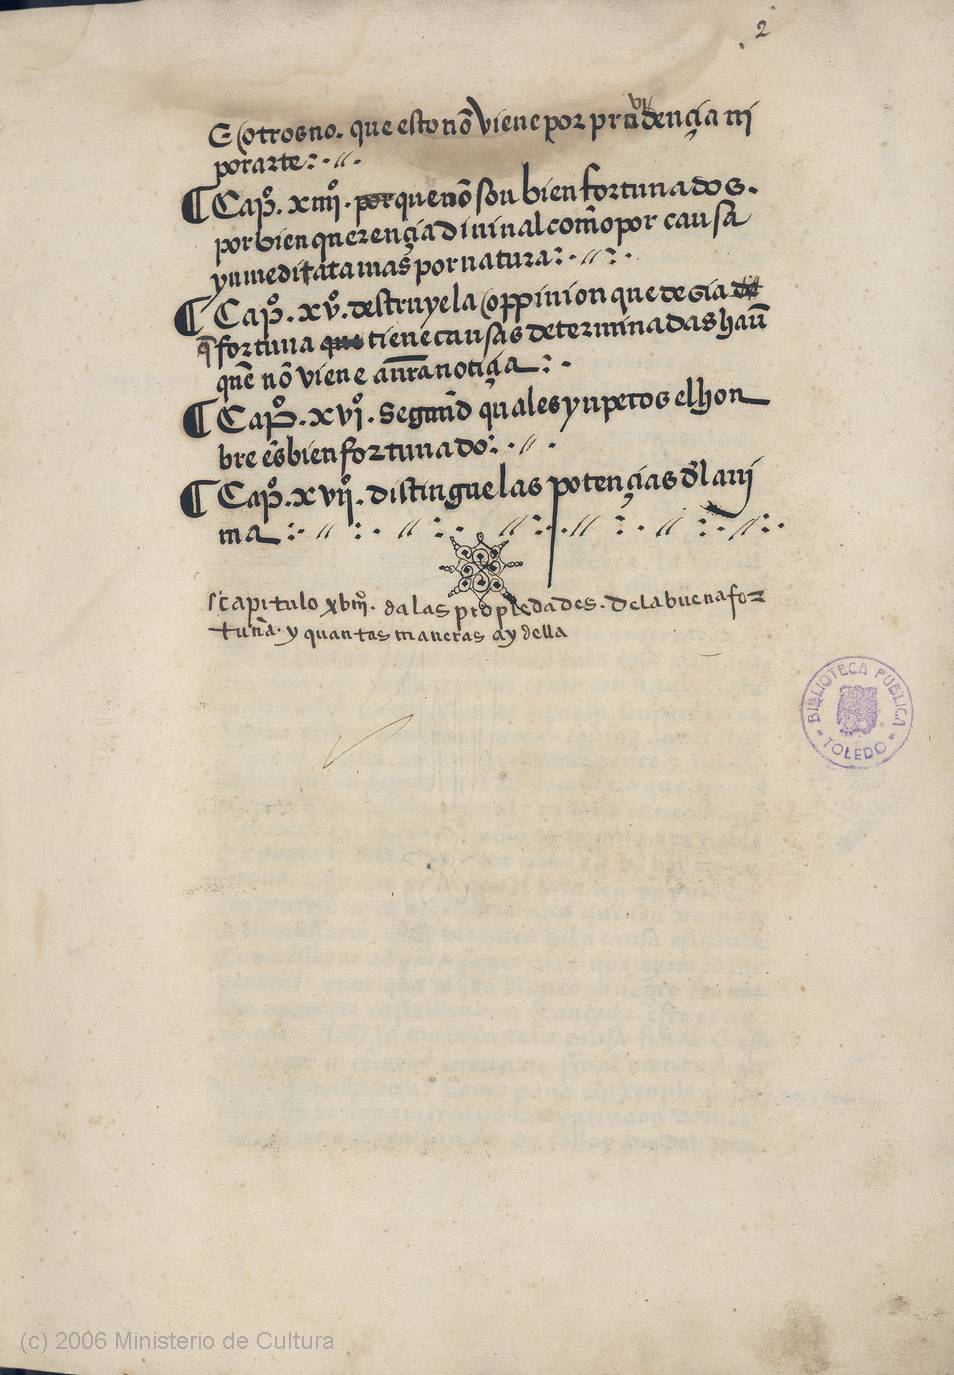 2
E otros no. que esto nõ viene por prudençia ni
vi
por arte:·//·
¶ Capº. xiiijº. por que nõ son bien fortunados.
por bien querençia diuinal com̃o por causa
ynmeditata mas por natura:·//:·
¶ Capº. xvº. destruye la oppinion que desia de
q̃ fortuna que tiene causas determinadas haũ
que nõ viene a nr̃a notiçia:·
¶ Capº. xviº. segund quales ynpetos el hon
bre es bien fortunado:·//·
¶ Capº. xvijº. distingue las potençias dl ani
ma:·//:·//:·//:·//:·//:·//:·
capitulo xbiijº. da las propiedades. de la buena for
tuna. y quantas maneras ay della
BIBLIOTECA PUBLICA
TOLEDO
(c) 2006 Ministerio de Cultura